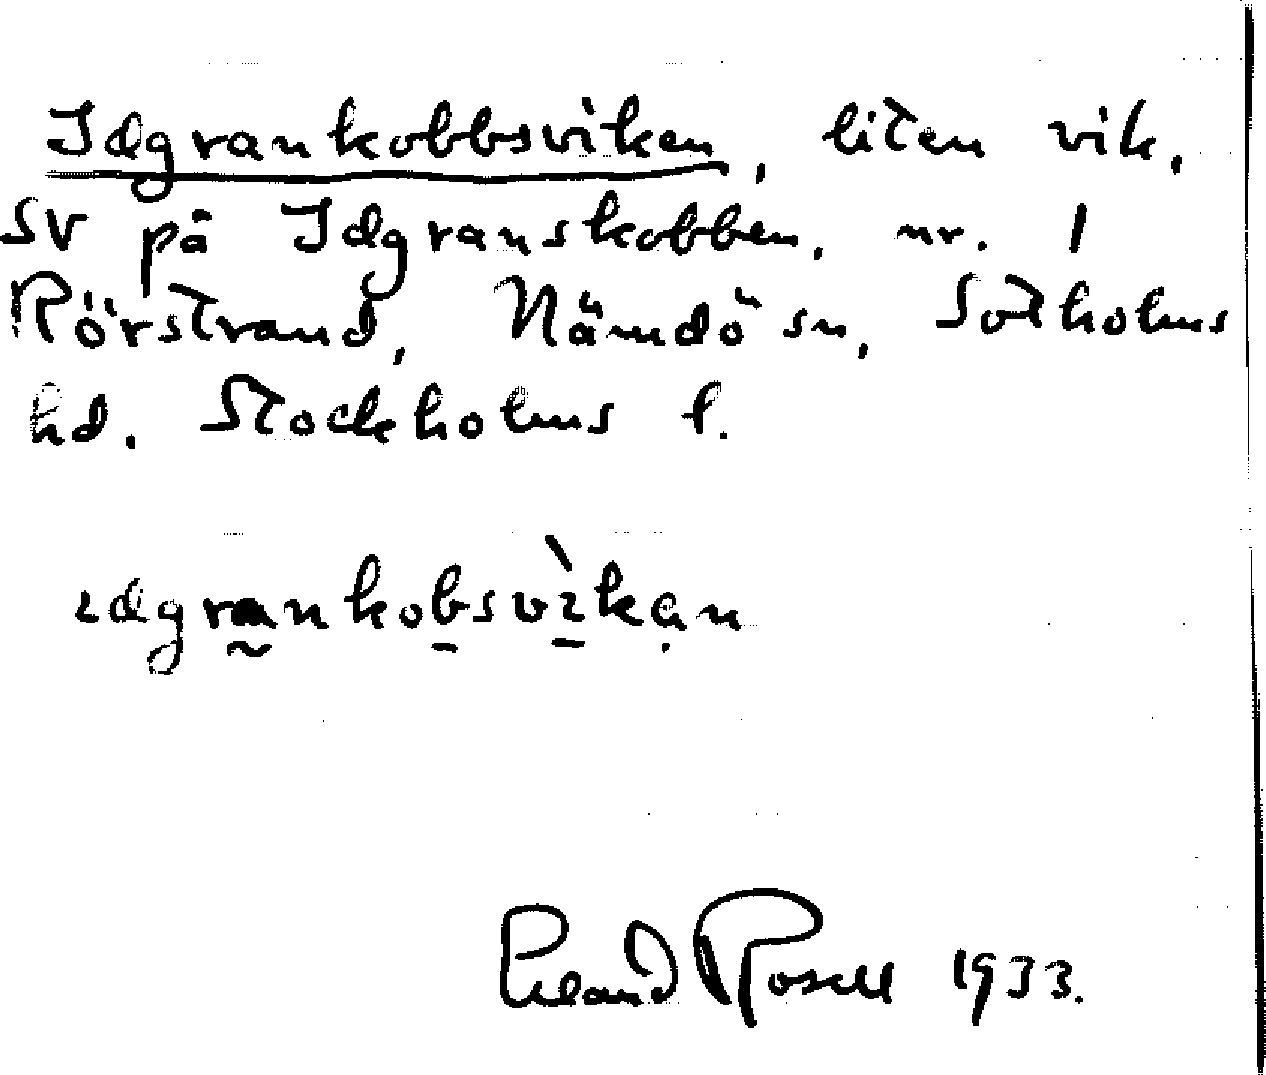 Idgrankobbsviken, liten vik,
SV på Idgranskobben, nr. 1
Rörstrand, Nämdö sn, Sotholms
hd. Stockholms l.
ɩdgrankobsvɩ̀kan
Rosell 1933.